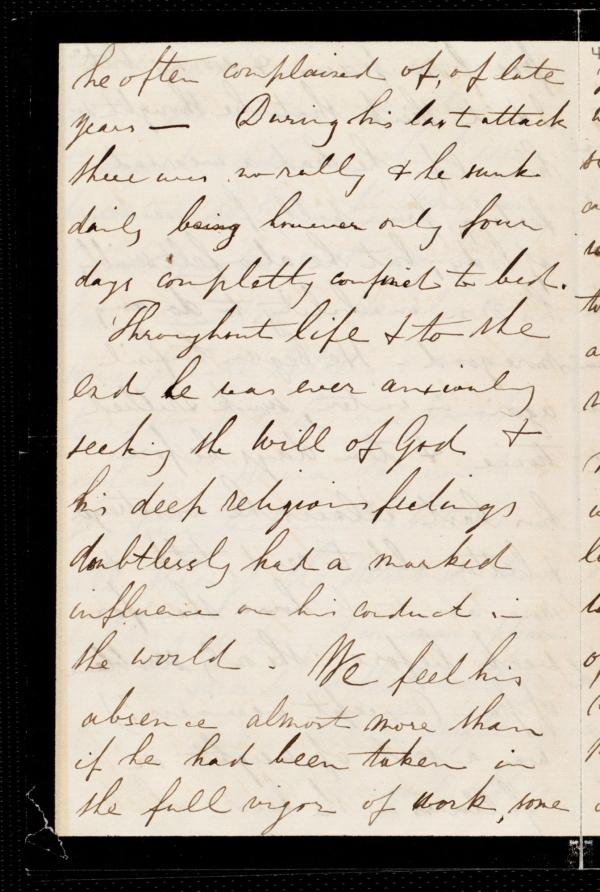 he often complained of, of late
years — During his last attack
there was no rally & he sunk
daily being however only four
days completly confined to bed.
Throughout life & to the
end he was ever anxiously
seeking the will of God &
his deep religious feelings
doubtlessly had a marked
influence on his conduct in
the world. We feel his
absence almost more than
if he had been taken in
the full vigor of work, some